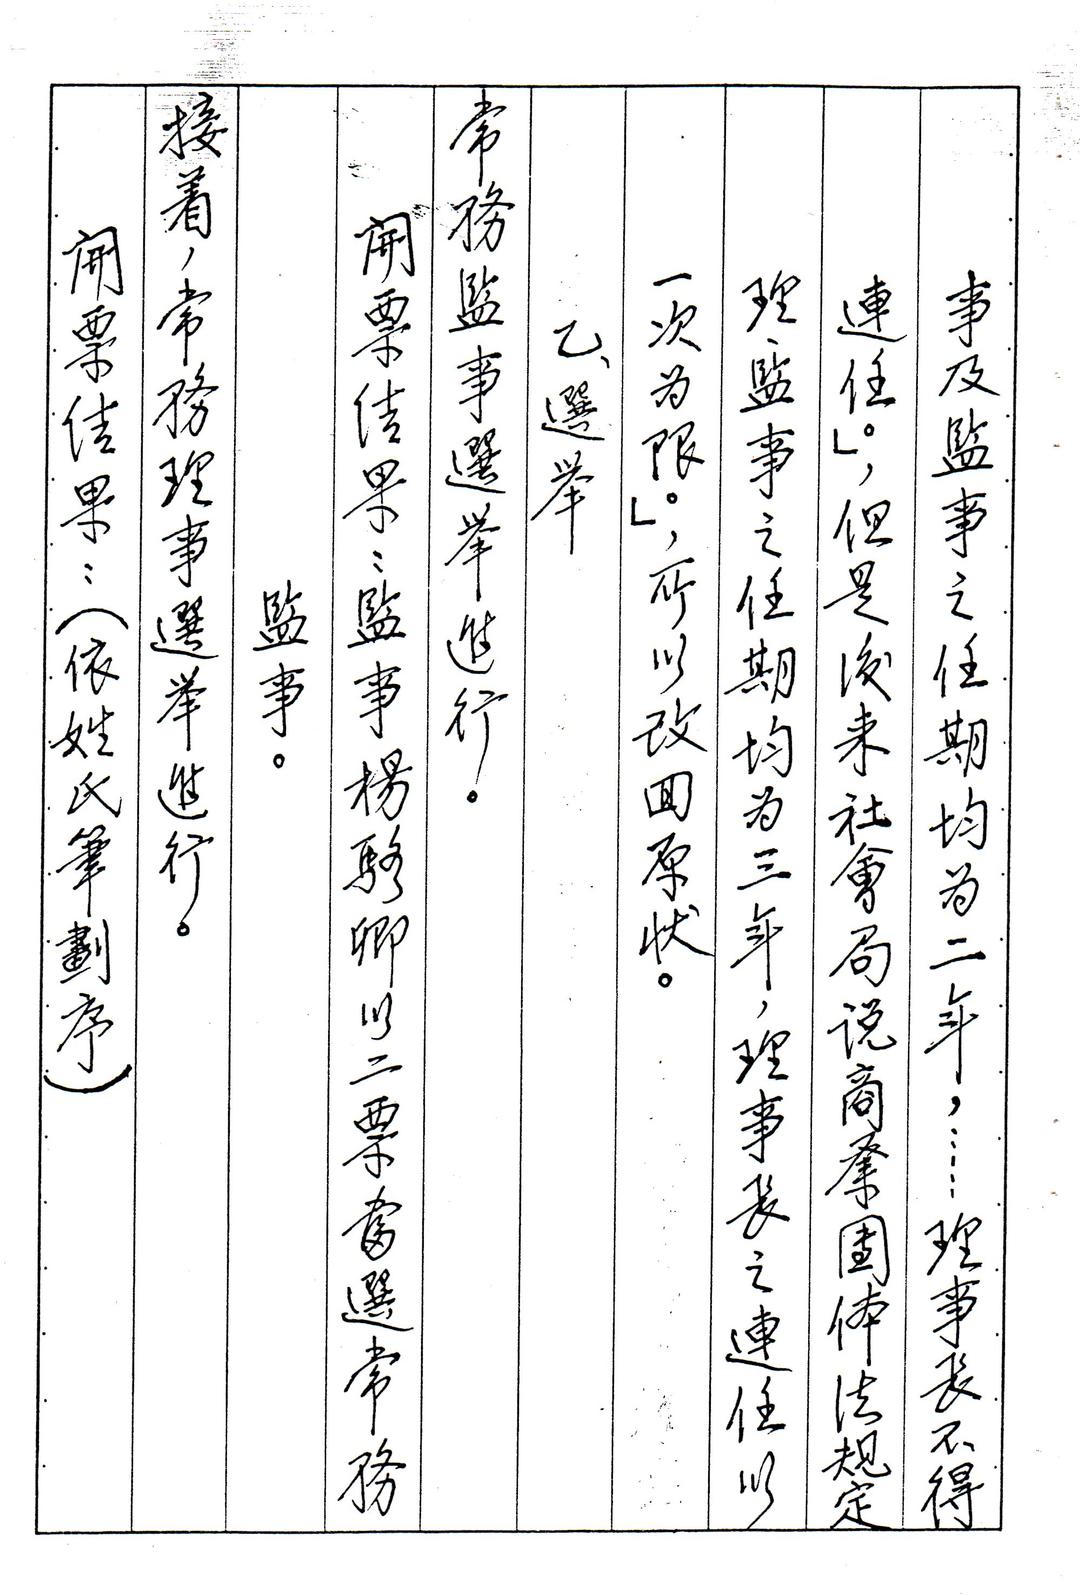 事及監事之任期均为二年，……理事長不得
連任。」，但是後来社會局説商業团体法規定
理、監事之任期均为三年，理事長之連任以
一次为限。」，所以改回原状。
乙、選挙
常務監事選挙進行。
開票佶果：監事楊駱卿以二票當選常務
監事。
接着，常務理事選挙進行。
開票佶果：（依姓氏筆劃序）